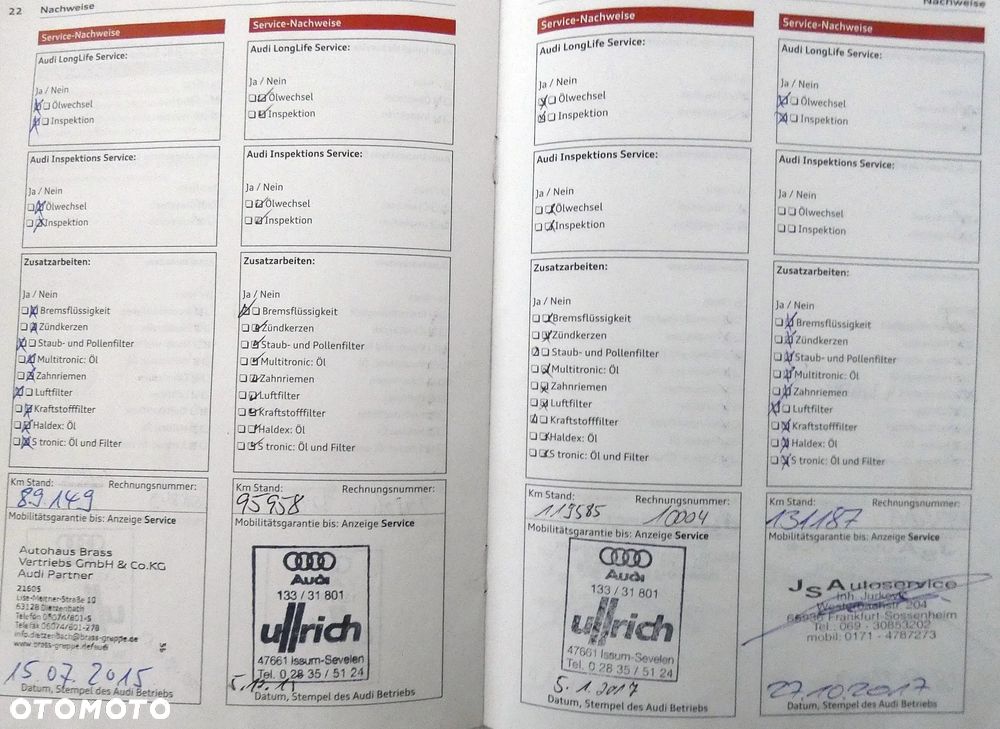 22 Nachweise
Service-Nachweise
Audi LongLife Service:
Ja / Nein
Ölwechsel
Inspektion
Audi Inspektions Service:
Ja / Nein
Ölwechsel
Inspektion
Zusatzarbeiten:
Ja / Nein
Bremsflüssigkeit
Zündkerzen
Staub- und Pollenfilter
Multitronic: Öl
Zahnriemen
Luftfilter
Kraftstofffilter
Haldex: Öl
S tronic: Öl und Filter
Km Stand: Rechnungsnummer:
89.149
Mobilitätsgarantie bis: Anzeige Service
Autohaus Brass
Vertriebs GmbH & Co.KG
Audi Partner
21605
Lise-Meitner-Straße 10
63128 Dietzenbach
Telefon 06074/801-5
Telefax 06074/801-278
info.dietzenbach@brass-gruppe.de
www.brass-gruppe.de/audi
15.07.2015
Datum, Stempel des Audi Betriebs
Service-Nachweise
Audi LongLife Service:
Ja / Nein
Ölwechsel
Inspektion
Audi Inspektions Service:
Ja / Nein
Ölwechsel
Inspektion
Zusatzarbeiten:
Ja / Nein
Bremsflüssigkeit
Zündkerzen
Staub- und Pollenfilter
Multitronic: Öl
Zahnriemen
Luftfilter
Kraftstofffilter
Haldex: Öl
S tronic: Öl und Filter
Km Stand: Rechnungsnummer:
95958
Mobilitätsgarantie bis: Anzeige Service
Audi
133 / 31 801
ullrich
47661 Issum-Sevelen
Tel. 0 28 35 / 51 24
Datum, Stempel des Audi Betriebs
Nachweise
Service-Nachweise
Audi LongLife Service:
Ja / Nein
Ölwechsel
Inspektion
Audi Inspektions Service:
Ja / Nein
Ölwechsel
Inspektion
Zusatzarbeiten:
Ja / Nein
Bremsflüssigkeit
Zündkerzen
Staub- und Pollenfilter
Multitronic: Öl
Zahnriemen
Luftfilter
Kraftstofffilter
Haldex: Öl
S tronic: Öl und Filter
Km Stand: Rechnungsnummer:
113585 10004
Mobilitätsgarantie bis: Anzeige Service
Audi
133 / 31 801
ullrich
47661 Issum-Sevelen
Tel. 0 28 35 / 51 24
5.1.2017
Datum, Stempel des Audi Betriebs
Service-Nachweise
Audi LongLife Service:
Ja / Nein
Ölwechsel
Inspektion
Audi Inspektions Service:
Ja / Nein
Ölwechsel
Inspektion
Zusatzarbeiten:
Ja / Nein
Bremsflüssigkeit
Zündkerzen
Staub- und Pollenfilter
Multitronic: Öl
Zahnriemen
Luftfilter
Kraftstofffilter
Haldex: Öl
S tronic: Öl und Filter
Km Stand: Rechnungsnummer:
131187
Mobilitätsgarantie bis: Anzeige Service
JS Autoservice
Inh. Jurkovic
Westerbachstr. 204
65936 Frankfurt-Sossenheim
Tel.: 069 - 30853202
mobil: 0171 - 4787273
27.10.2017
Datum, Stempel des Audi Betriebs
OTOMOTO